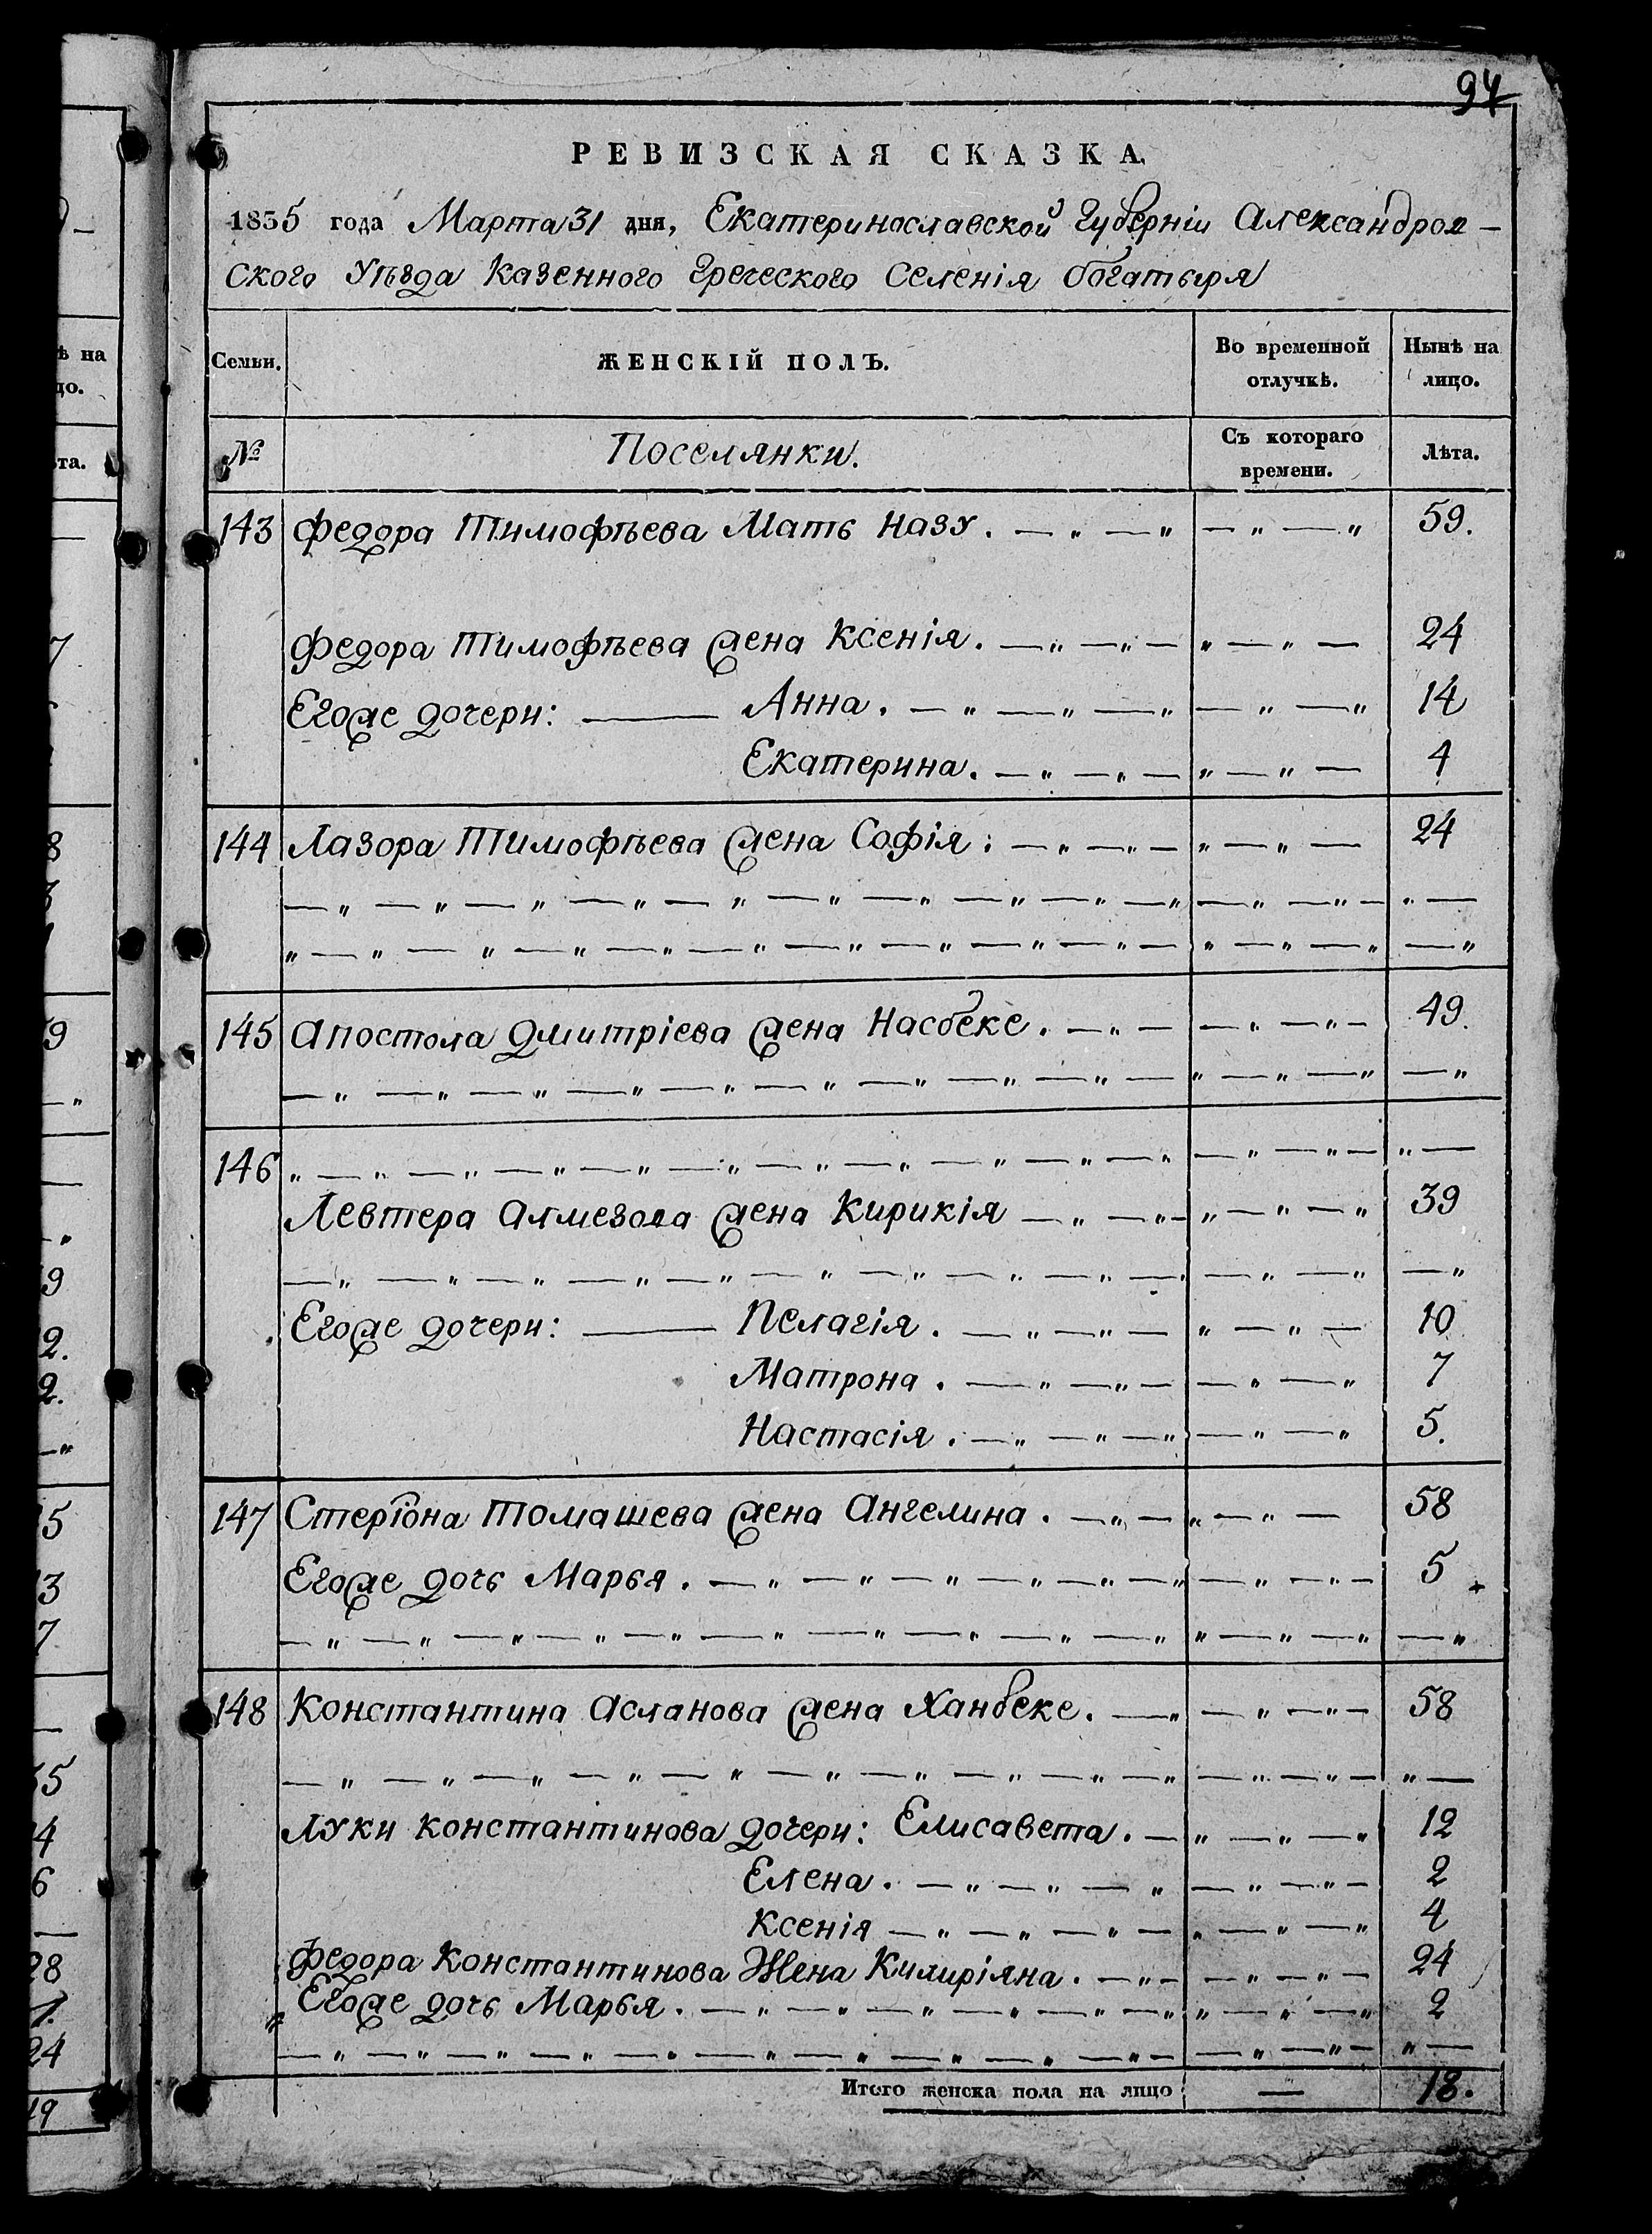 94
РЕВИЗСКАЯ СКАЗКА
1835 года Марта 31 дня, Екатеринославской Губерніи Александров-
ского Уѣзда Казенного Греческого Селенія Богатыря
Семьи.
ЖЕНСКІЙ ПОЛЪ.
Во временной отлучкѣ.
Нынѣ на лицо.
№
Поселянки.
Съ котораго времени.
Лѣта.
143 Федора Тимофѣева Мать Назу. — „ — „ — „ — „ 59.
Федора Тимофѣева жена Ксенія. — „ — „ — „ — „ — 24
Егоже дочери: — Анна. — „ — „ — „ — „ — „ 14
Екатерина. — „ — „ — „ — „ — 4
144 Лазора Тимофѣева жена Софія: — „ — „ — „ — „ — 24
145 Апостола Дмитріева жена Насбеке. — „ — — „ — „ — 49.
146
Левтера Алмезова жена Кирикія — „ — „ — „ — „ — „ 39
Егоже дочери: — Пелагія. — „ — „ — „ — „ — 10
Матрона. — „ — „ — — „ — „ 7
Настасія. — „ — „ — „ — „ — „ 5.
147 Стеріона Томашева жена Ангелина. — „ — „ — „ — 58
Егоже дочь Марья. — „ — „ — „ — „ — „ — „ — „ — „ — 5
148 Константина Асланова жена Ханбеке. — „ — „ — „ — 58
Луки Константинова дочери: Елисавета. — „ — „ — „ 12
Елена. — „ — „ — „ — „ — „ — 2
Ксенія — „ — „ — „ — „ — „ — „ 4
Федора Константинова Жена Килиріяна. — „ — — „ — „ — 24
Егоже дочь Марья. — „ — „ — „ — „ — „ — „ „ — „ — „ 2
Итого женска пола на лицо — 18.
ѣ на